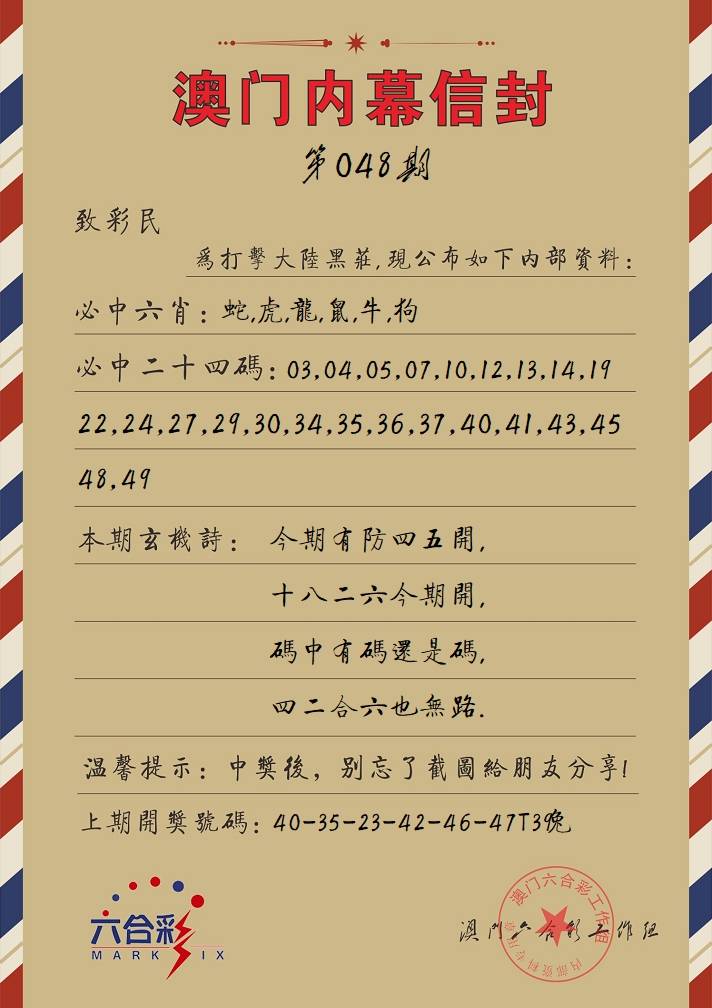 澳门内幕信封
第048期
致彩民
為打擊大陸黑莊,現公布如下内部資料:
必中六肖:蛇,虎,龍,鼠,牛,狗
必中二十四碼:03,04,05,07,10,12,13,14,19
22,24,27,29,30,34,35,36,37,40,41,43,45
48,49
本期玄機詩: 今期有防四五開,
十八二六今期開,
碼中有碼還是碼,
四二合六也無路.
温馨提示:中獎後,别忘了截圖給朋友分享!
上期開獎號碼:40-35-23-42-46-47T39兔
六合彩
MARK SIX
澳门六合彩工作组
内部资料专用章
澳门六合彩工作组